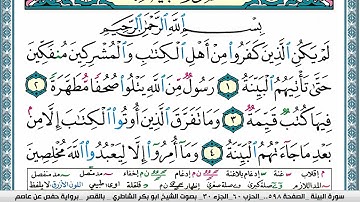 بِسْمِ ٱللَّهِ ٱلرَّحْمَٰنِ ٱلرَّحِيمِ
لَمْ يَكُنِ ٱلَّذِينَ كَفَرُوا۟ مِنْ أَهْلِ ٱلْكِتَٰبِ وَٱلْمُشْرِكِينَ مُنفَكِّينَ
حَتَّىٰ تَأْتِيَهُمُ ٱلْبَيِّنَةُ ١ رَسُولٌ مِّنَ ٱللَّهِ يَتْلُوا۟ صُحُفًا مُّطَهَّرَةً ٢
فِيهَا كُتُبٌ قَيِّمَةٌ ٣ وَمَا تَفَرَّقَ ٱلَّذِينَ أُوتُوا۟ ٱلْكِتَٰبَ إِلَّا مِنۢ
بَعْدِ مَا جَآءَتْهُمُ ٱلْبَيِّنَةُ ٤ وَمَآ أُمِرُوٓا۟ إِلَّا لِيَعْبُدُوا۟ ٱللَّهَ مُخْلِصِينَ
سورة البينة . الصفحة ٥٩٨ .. الحزب ٦٠ الجزء ٣٠ . بصوت الشيخ ابو بكر الشاطري .. بالقمر .. برواية حفص عن عاصم